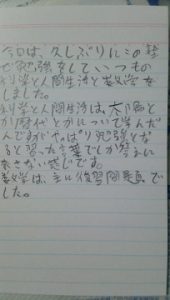 今日は、久しぶりにこの
で勉強をしていつもの
科学と人間生活と数学を
しました。
科学と人間生活は、太陽
か暦代とかについて学んだ
んですがやっぱり勉強とな
ると習った言葉でしか答えに
出さない感じです。
数学は、主に復習問題で
した。